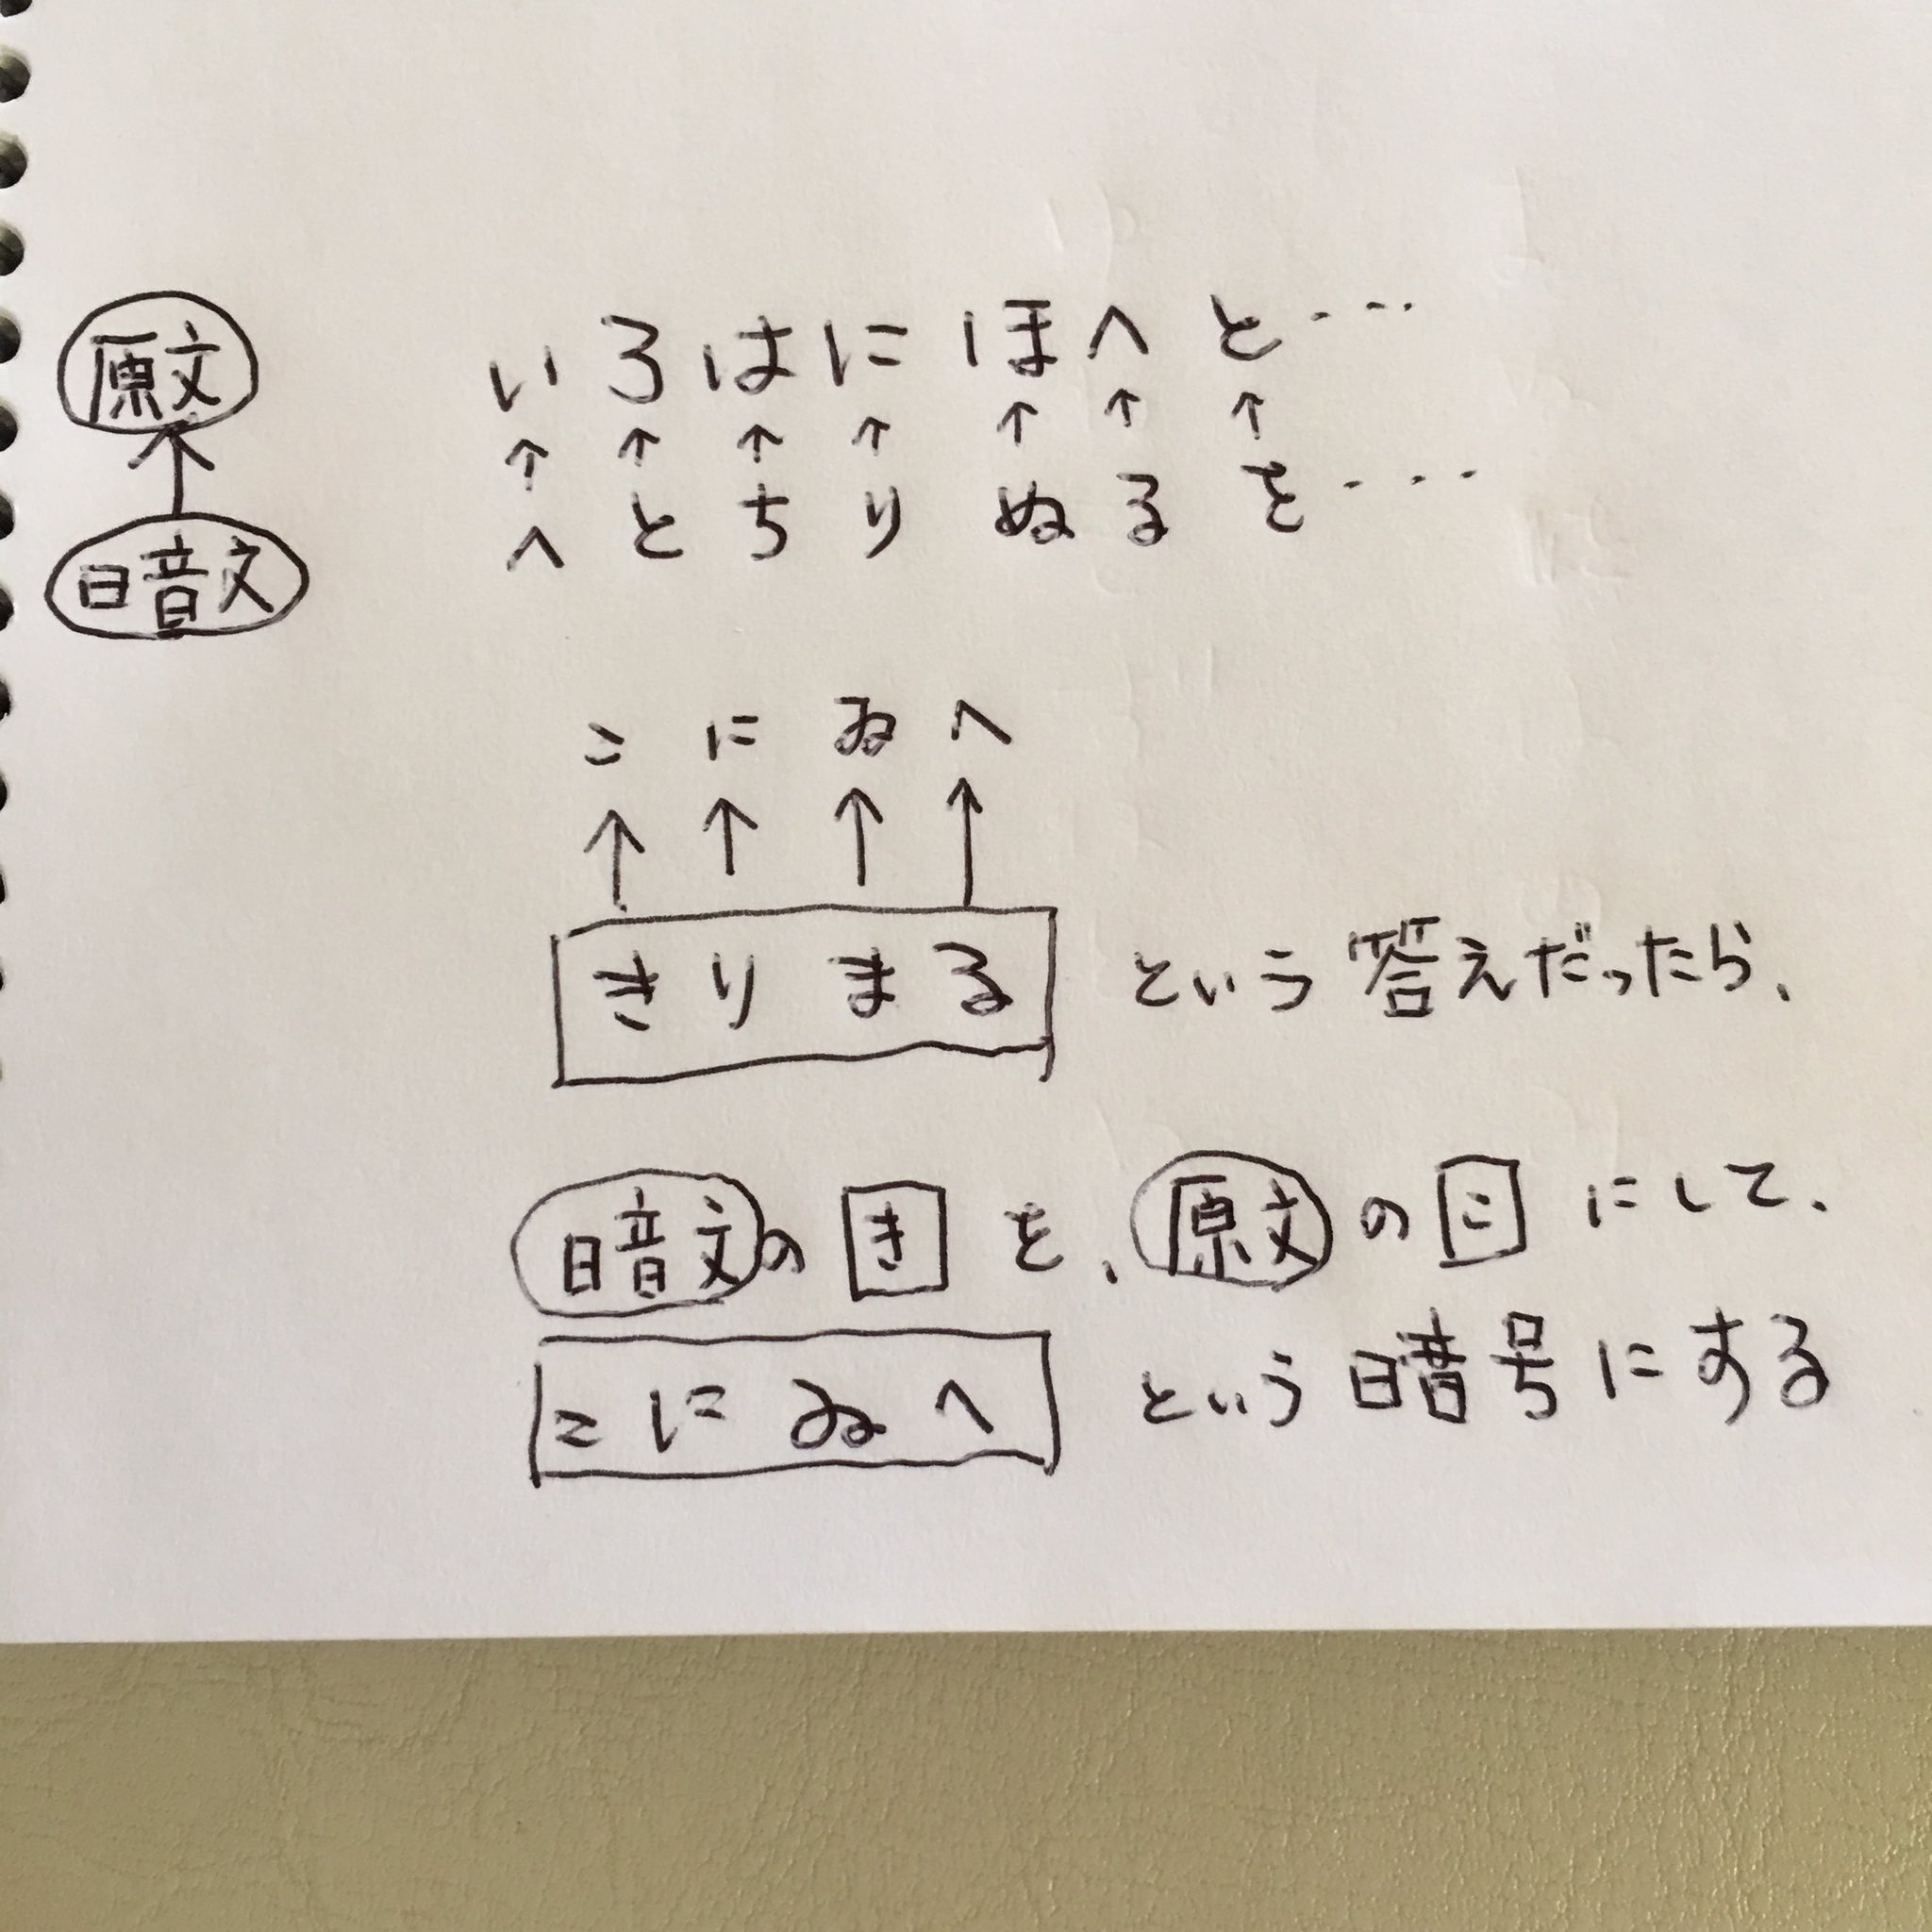 原文 いろはにほへと・・・
↑ ↑ ↑ ↑ ↑ ↑ ↑ ↑
暗文 へとちりぬるを・・・
こにゐへ
↑ ↑ ↑ ↑
きりまる という答えだったら、
暗文の き を、原文の こ にして、
こにゐへ という暗号にする